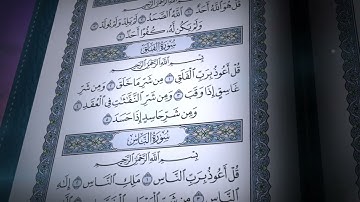 قُلْ هُوَ ٱللَّهُ أَحَدٌ ١ ٱللَّهُ ٱلصَّمَدُ ٢ لَمْ يَلِدْ وَلَمْ يُولَدْ ٣
وَلَمْ يَكُن لَّهُۥ كُفُوًا أَحَدٌۢ ٤
سُورَةُ ٱلْفَلَقِ
بِسْمِ ٱللَّهِ ٱلرَّحْمَٰنِ ٱلرَّحِيمِ
قُلْ أَعُوذُ بِرَبِّ ٱلْفَلَقِ ١ مِن شَرِّ مَا خَلَقَ ٢ وَمِن شَرِّ
غَاسِقٍ إِذَا وَقَبَ ٣ وَمِن شَرِّ ٱلنَّفَّٰثَٰتِ فِي ٱلْعُقَدِ ٤
وَمِن شَرِّ حَاسِدٍ إِذَا حَسَدَ ٥
سُورَةُ ٱلنَّاسِ
بِسْمِ ٱللَّهِ ٱلرَّحْمَٰنِ ٱلرَّحِيمِ
قُلْ أَعُوذُ بِرَبِّ ٱلنَّاسِ ١ مَلِكِ ٱلنَّاسِ ٢ إِلَٰهِ
ٱلنَّاسِ ٣ مِن شَرِّ